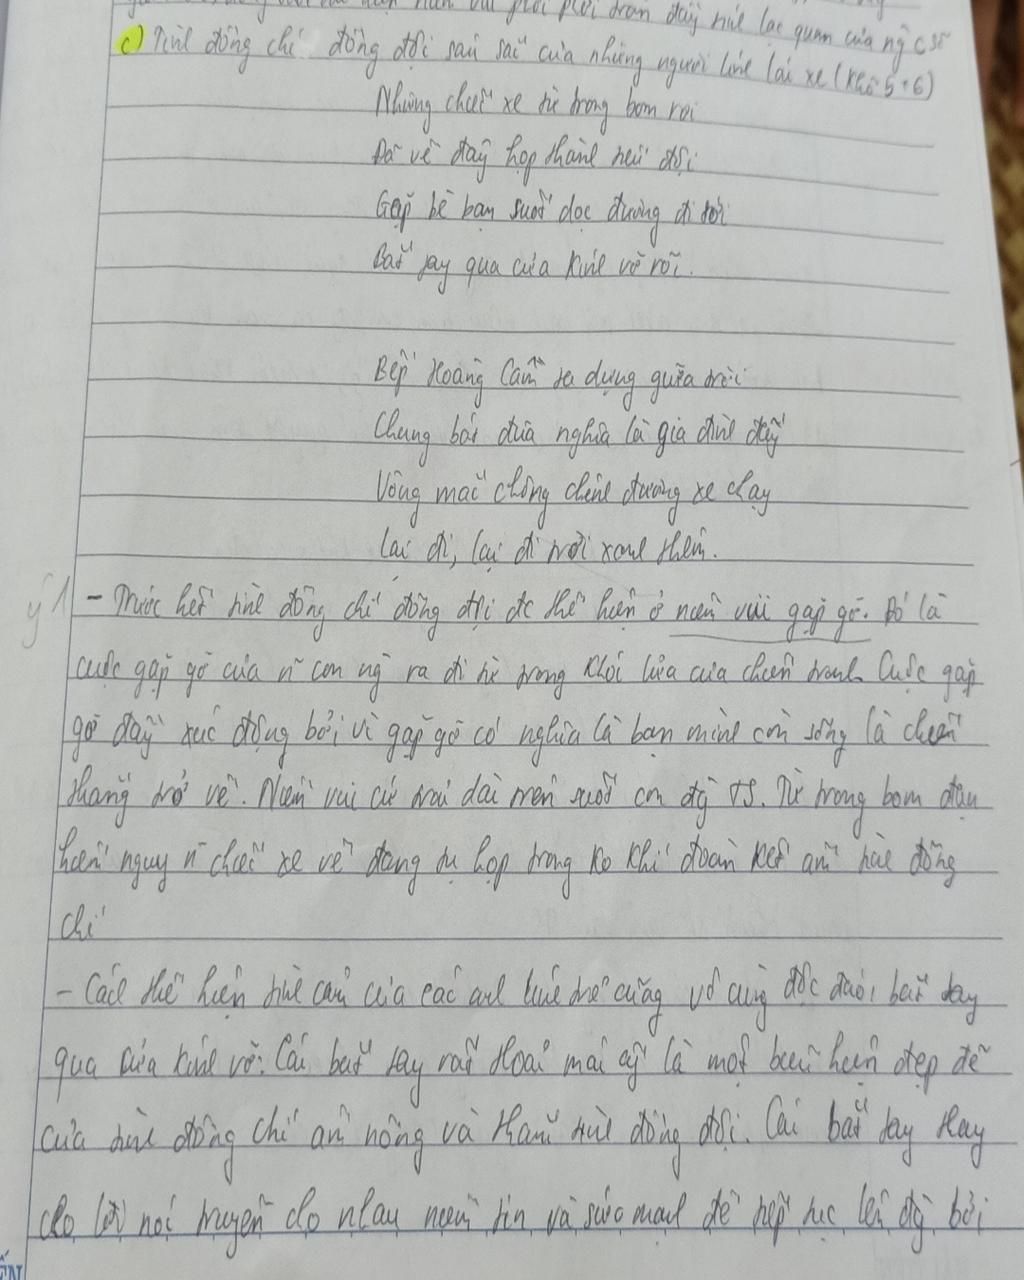 phơi phới tràn đầy tinh lạc quan của ng c sĩ
c) Tình đồng chí đồng đội sâu sắc của những người lính lái xe (khổ 5+6)
Những chiếc xe từ trong bom rơi
Đã về đây họp thành tiểu đội
Gặp bè bạn suốt dọc đường đi tới
Bắt tay qua cửa kính vỡ rồi.
Bếp Hoàng Cầm ta dựng giữa trời
Chung bát đũa nghĩa là gia đình đấy
Võng mắc chông chênh đường xe chạy
Lại đi, lại đi trời xanh thêm.
ý 1 - Trước hết tình đồng chí đồng đội đc thể hiện ở niềm vui gặp gỡ. Đó là
cuộc gặp gỡ của n~ con ng ra đi từ trong khói lửa của chiến tranh. Cuộc gặp
gỡ đầy xúc động bởi vì gặp gỡ có nghĩa là bạn mình còn sống là chiến
thắng trở về. Niềm vui cứ trải dài trên suốt con đg TS. Từ trong bom đạn
hiểm nguy n~ chiếc xe về đang tụ họp trong ko khí đoàn kết ấm tình đồng
chí
- Cách thể hiện tình cảm của các anh lính trẻ cũng vô cùng độc đáo: bắt tay
qua cửa kính vỡ. Cái bắt tay rất thoải mái ấy là một biểu hiện đẹp đẽ
của tình đồng chí ấm nồng và thắm tình đồng đội. Cái bắt tay thay
cho lời nói truyền cho nhau niềm tin và sức mạnh để tiếp tục lên đg bởi